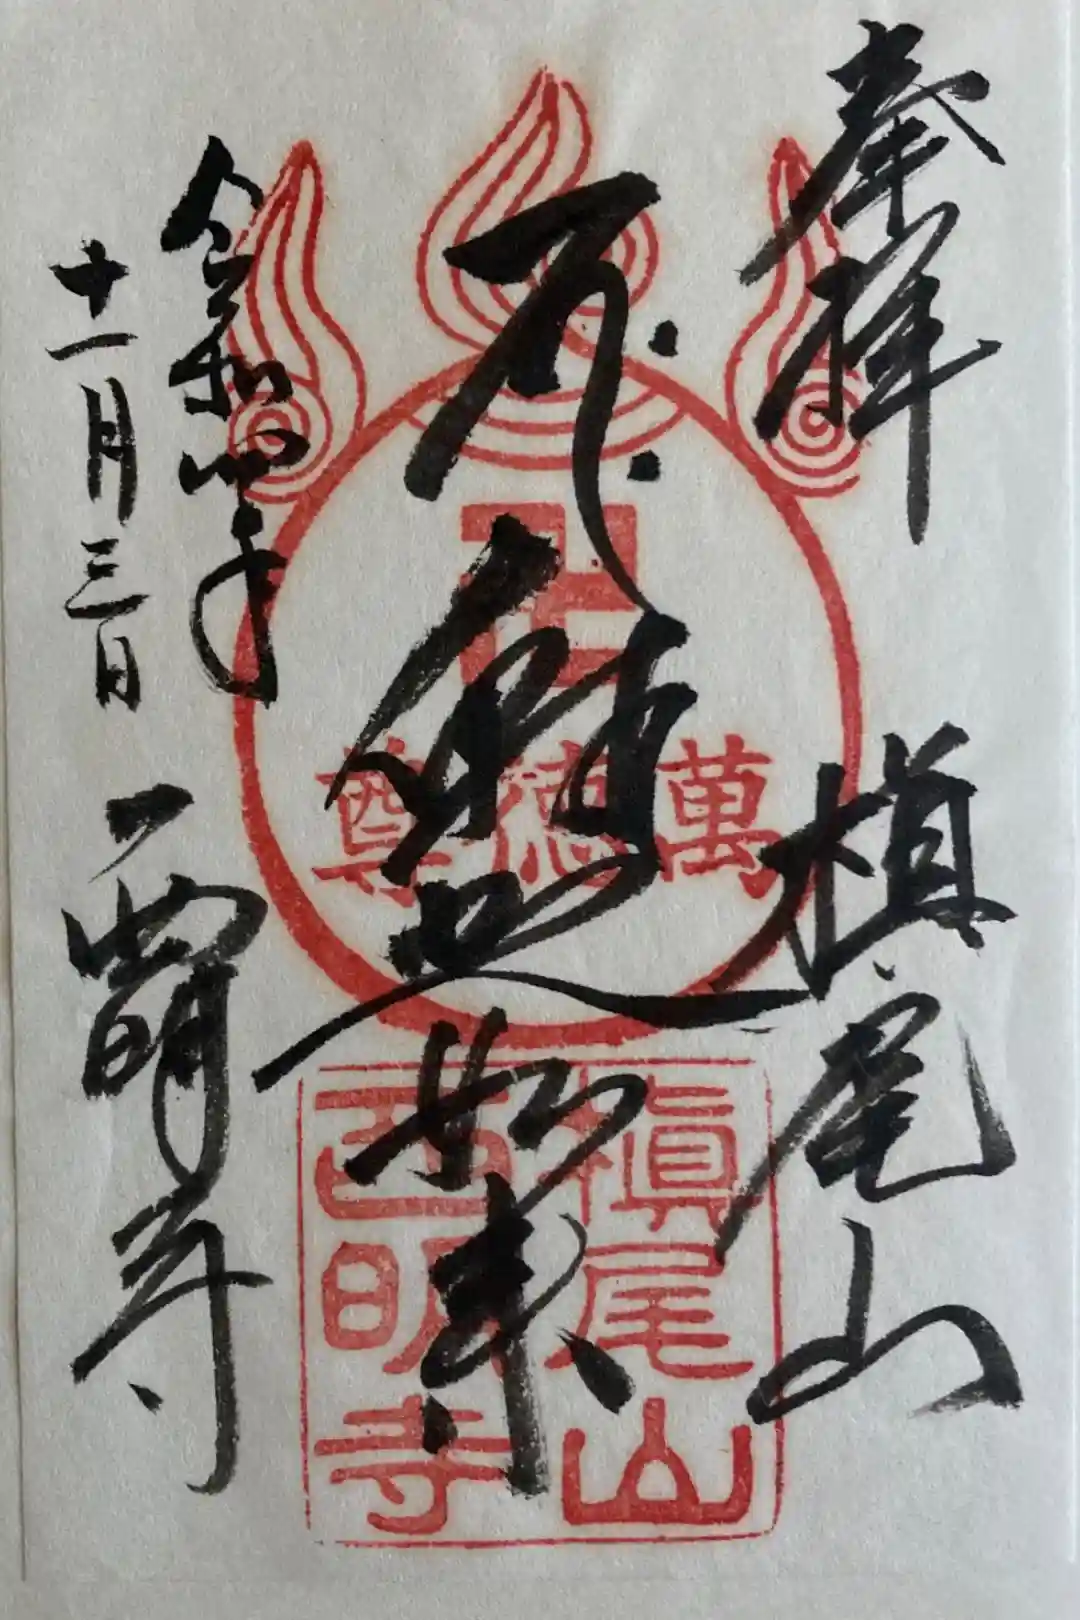 奉拝
槇尾山
釋迦如来
令和四年
十一月三日
西明寺
卍
萬徳尊
槇尾山
西明寺